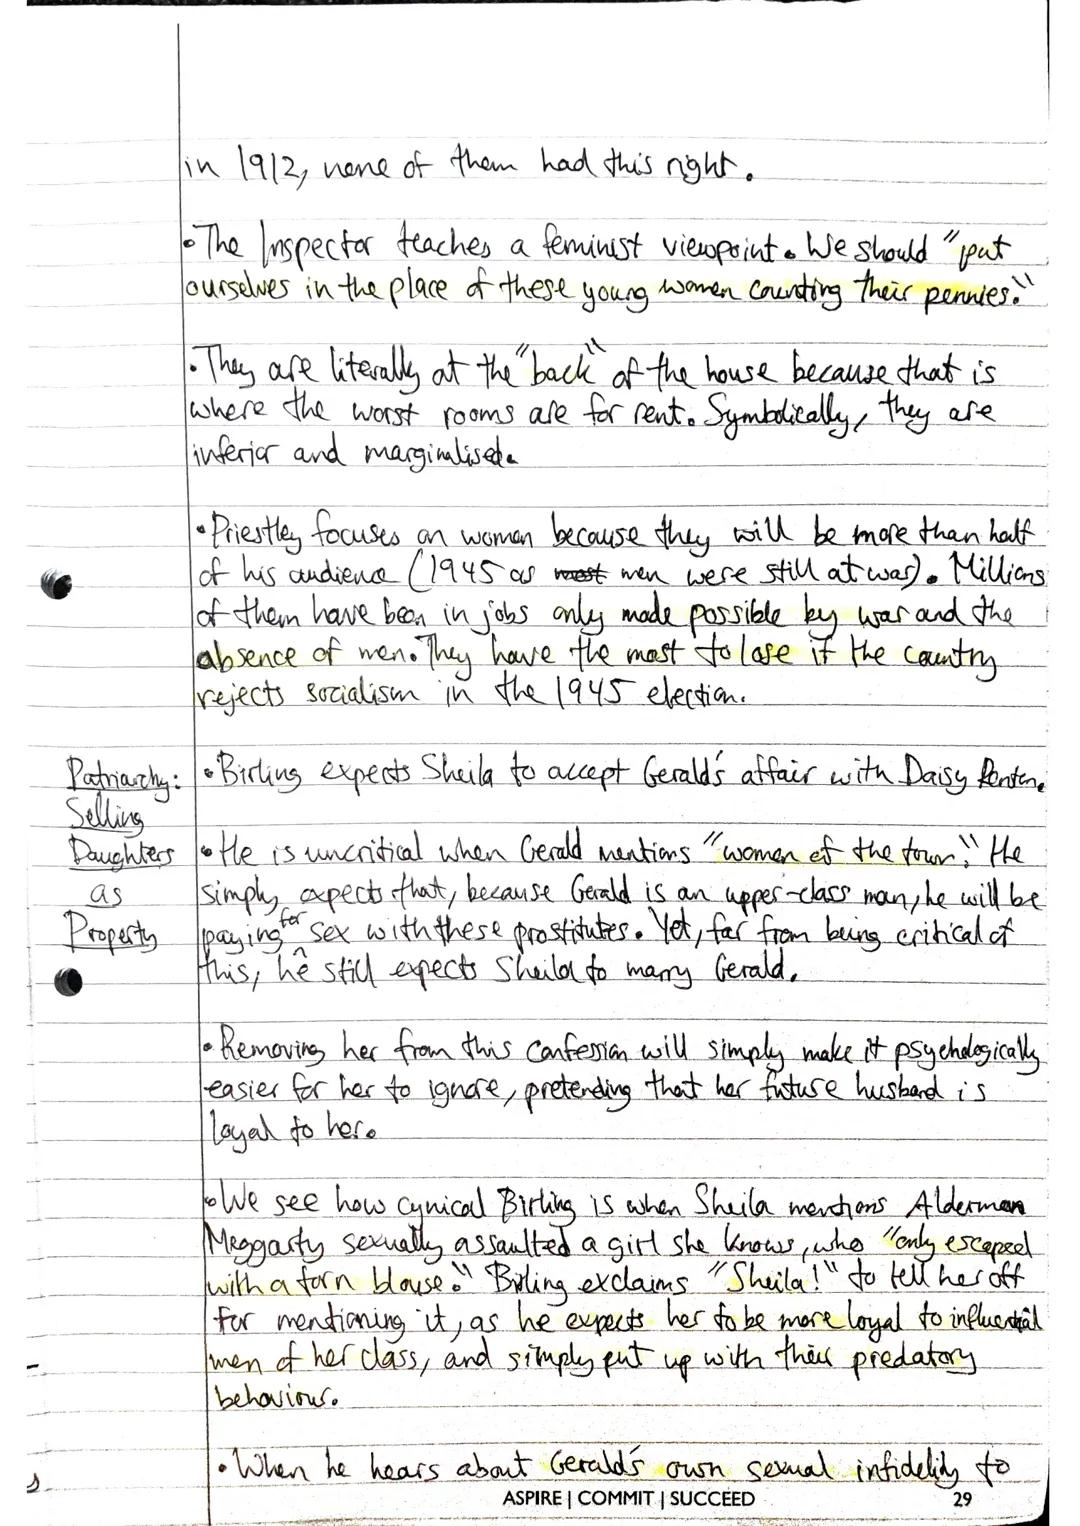 in 1912, none of them had this right.
•The Inspector teaches a feminist viewpoint. We should "put
ourselves in the place of these young women counting their pennies."
•They are literally at the "back" of the house because that is
where the worst rooms are for rent. Symbolically, they are
inferior and marginalised.
•Priestley focuses on women because they will be more than half
of his audience (1945 as most men were still at war). Millions
of them have been in jobs only made possible by war and the
absence of men. They have the most to lose if the country
rejects socialism in the 1945 election.
Patriarchy:
Selling
Daughters
as
Property
•Birling expects Sheila to accept Gerald's affair with Daisy Renton.
•He is uncritical when Gerald mentions "women of the town." He
simply expects that, because Gerald is an upper-class man, he will be
paying for sex with these prostitutes. Yet, far from being critical of
this, he still expects Sheila to marry Gerald.
•Removing her from this confession will simply make it psychologically
easier for her to ignore, pretending that her future husband is
loyal to her.
•We see how cynical Birling is when Sheila mentions Alderman
Meggarty sexually assaulted a girl she knows, who "only escaped
with a torn blouse." Birling exclaims "Sheila!" to tell her off
for mentioning it, as he expects her to be more loyal to influential
men of her class, and simply put up with their predatory
behaviour.
•When he hears about Gerald's own sexual infidelity to
ASPIRE | COMMIT | SUCCEED
29